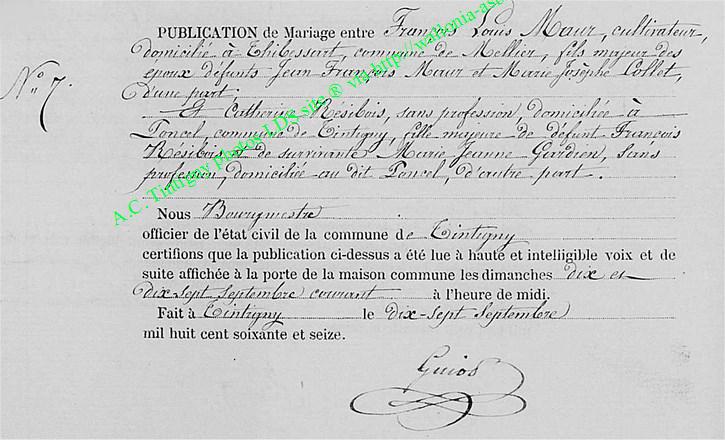 PUBLICATION de Mariage entre François Louis Maur, cultivateur,
domicilié à Thibessart, commune de Mellier, fils majeur des
époux défunts Jean François Maur et Marie Josèphe Collet,
d'une part;
Nº 7.
Et Catherine Résibois, sans profession, domiciliée à
Poncel commune de Tintigny, fille majeure de défunt François
Résibois et de survivante Marie Jeanne Gardien, sans
profession, domiciliée au dit Poncel, d'autre part.
Nous Bourgmestre
officier de l'état civil de la commune de Tintigny
certifions que la publication ci-dessus a été lue à haute et intelligible voix et de
suite affichée à la porte de la maison commune les dimanches dix et
dix sept Septembre courant à l'heure de midi.
Fait à Tintigny le dix-sept Septembre
mil huit cent soixante et seize.
Guiot
A.C. Tintigny photos LDS site ® via http://wallonia-as